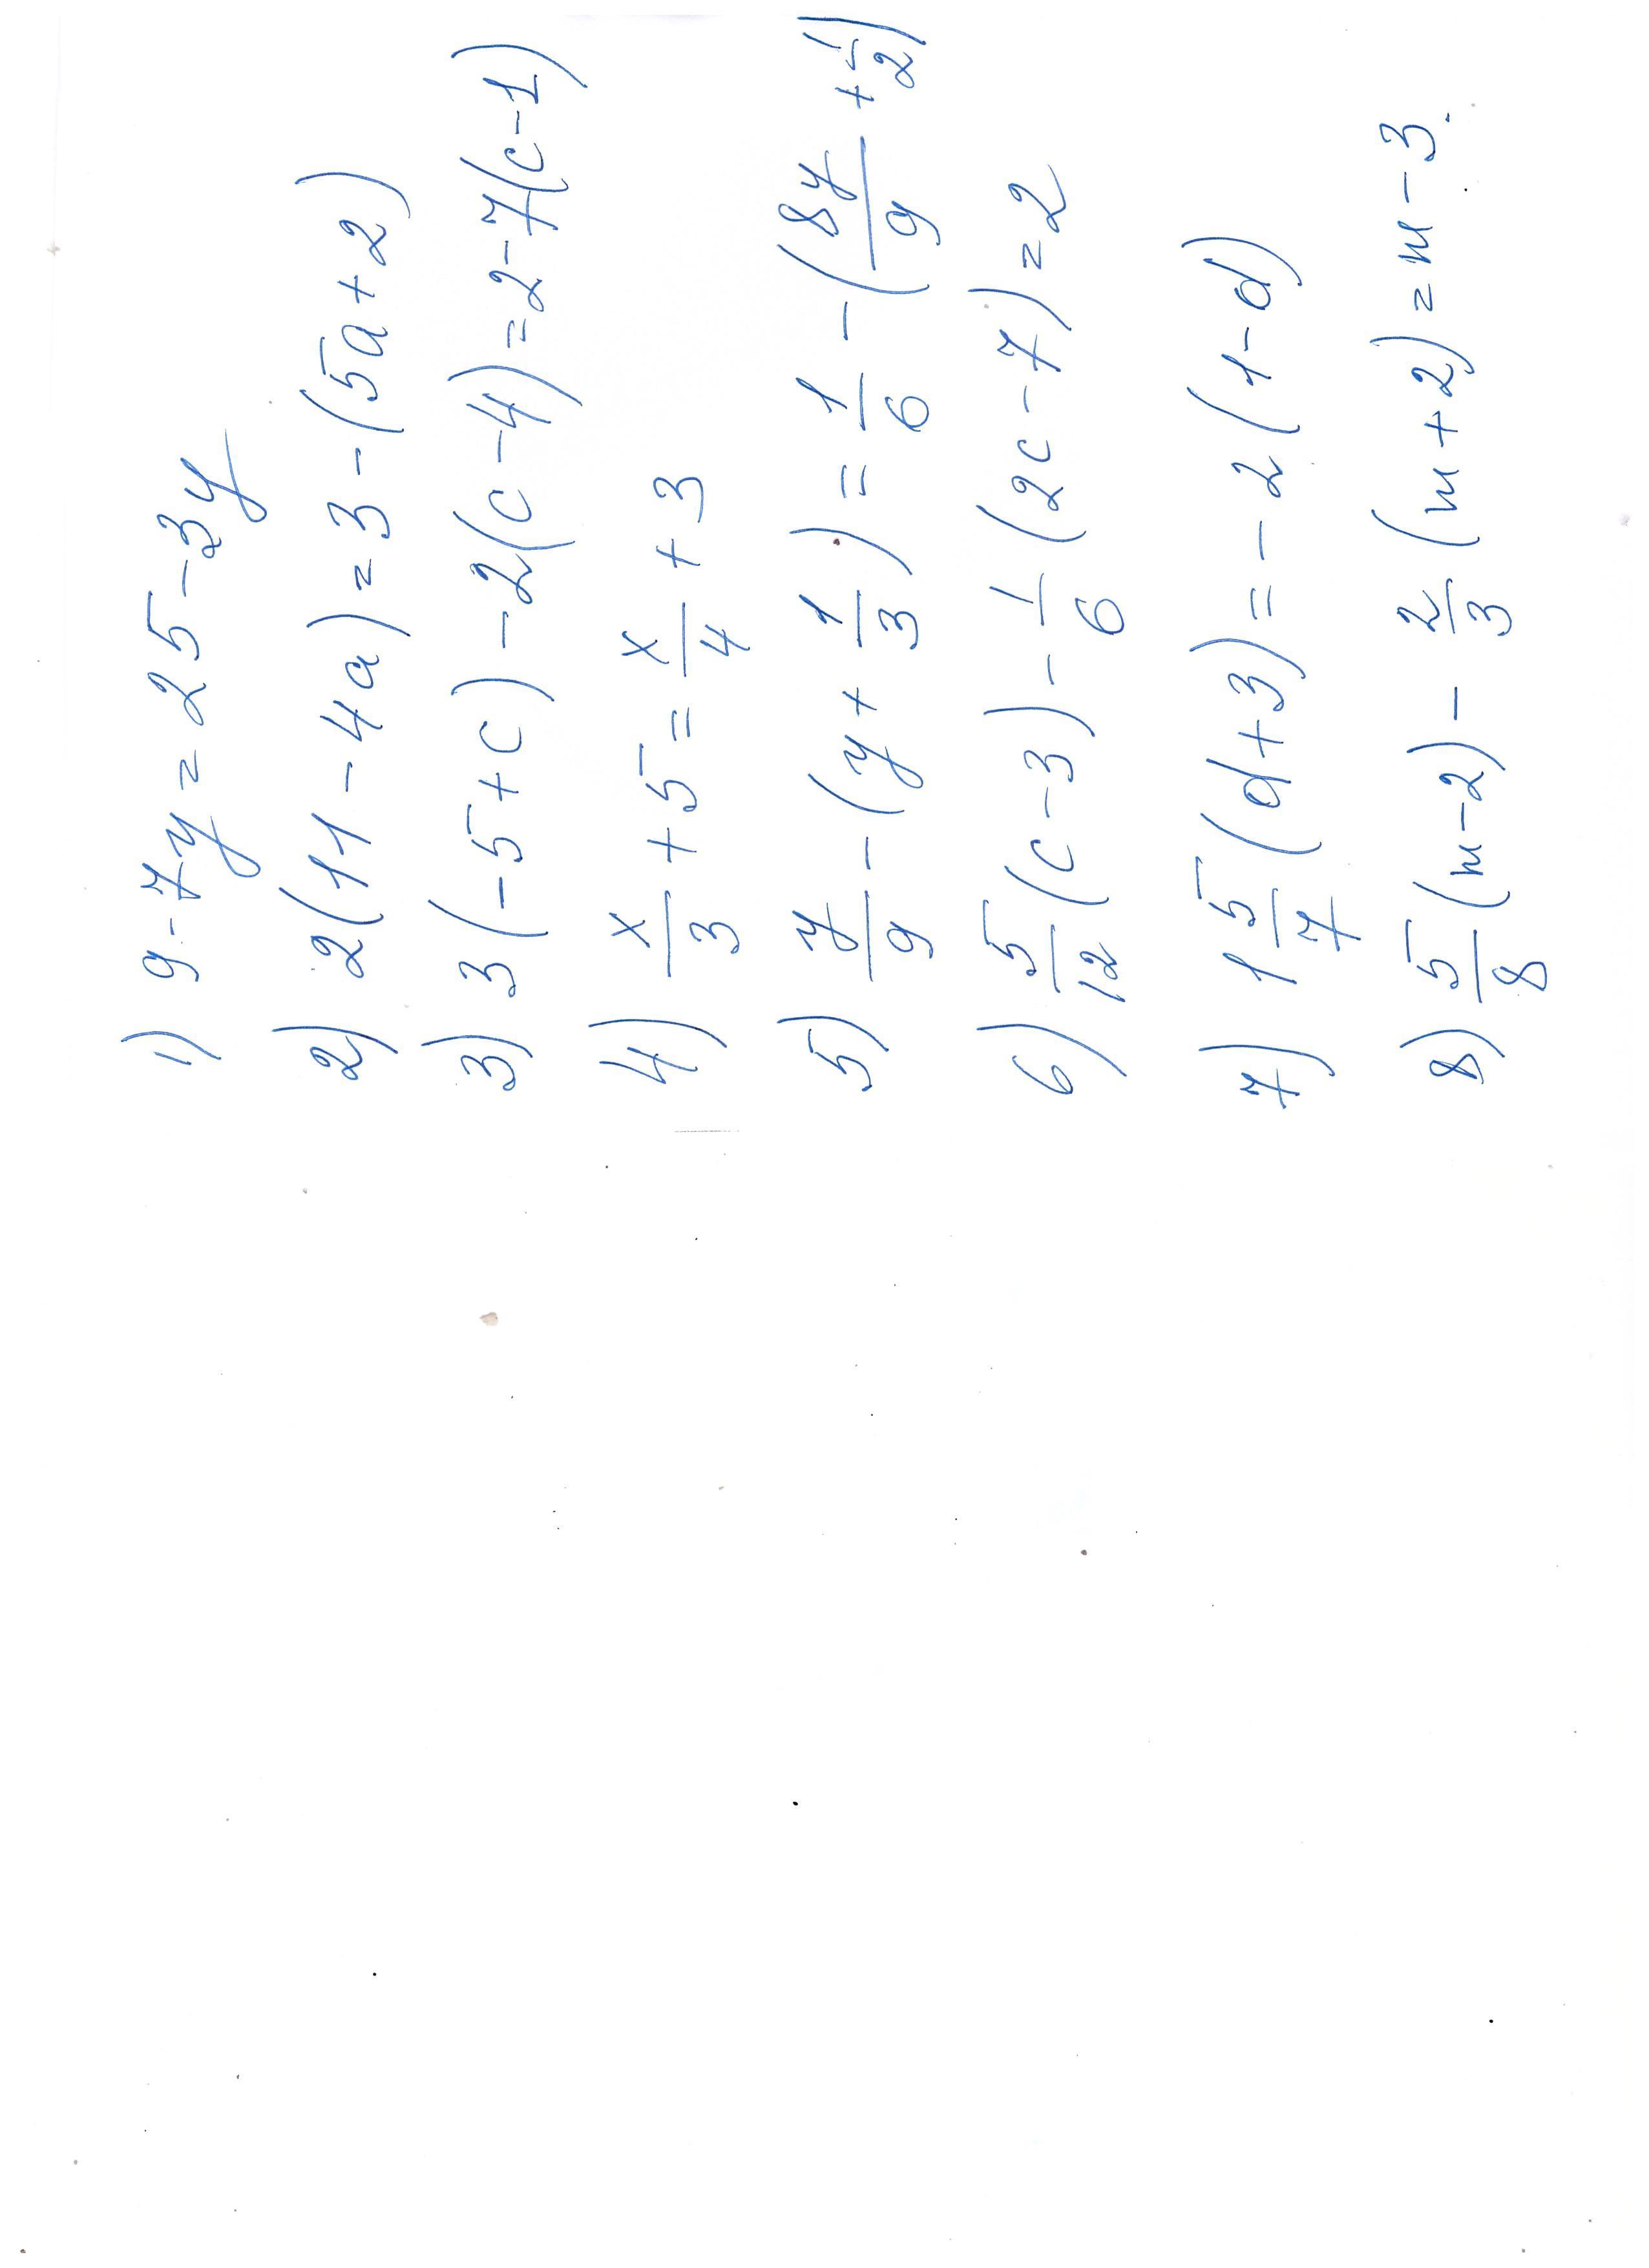 1) 9-7y = 25-3y
2) 2(11-4a) = 3-(5a+2)
3) 3(-5+c)-2(c-4) = 2-7(c-1)
4) x/3 + 5 = x/4 + 3
5) y/9 - (y + 1/3) = 1/6 - (8y/9 + 1/2)
6) 5/12 (c-3) - 1/6 (2c-7) = 2
7) 1 5/7 (d+3) = -2(1-d)
8) 5/8 (m-2) - 2/3 (m+2) = m-3.